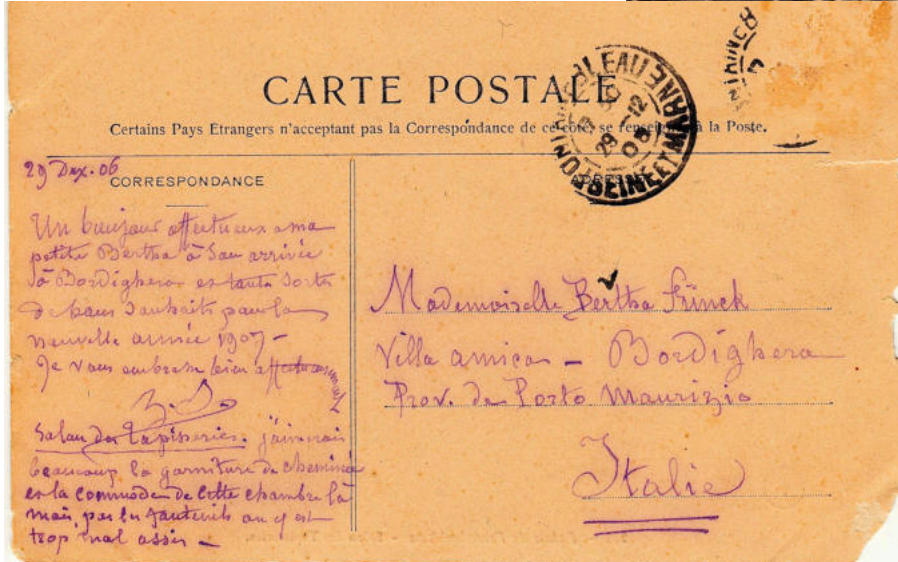 CARTE POSTALE
Certains Pays Etrangers n'acceptent pas la Correspondance de ce côté, se renseigner à la Poste.
FONTAINEBLEAU
29 -12
06
SEINE ET MARNE
29 Dex. 06
CORRESPONDANCE
Un bonjour affectueux a ma
petite Bertha à son arrivée
à Bordighera et toute sorte
de bons souhaits pour la
nouvelle année 1907 -
Je vous embrasse bien affectueusement
Salon des Tapisseries. j'aimerais
beaucoup la garniture de cheminée
et la commode de cette chambre là
mais pas les fauteuils on y est
trop mal assis -
Mademoiselle Bertha Fünck
Villa amica - Bordighera
Prov. de Porto Maurizio
Italie